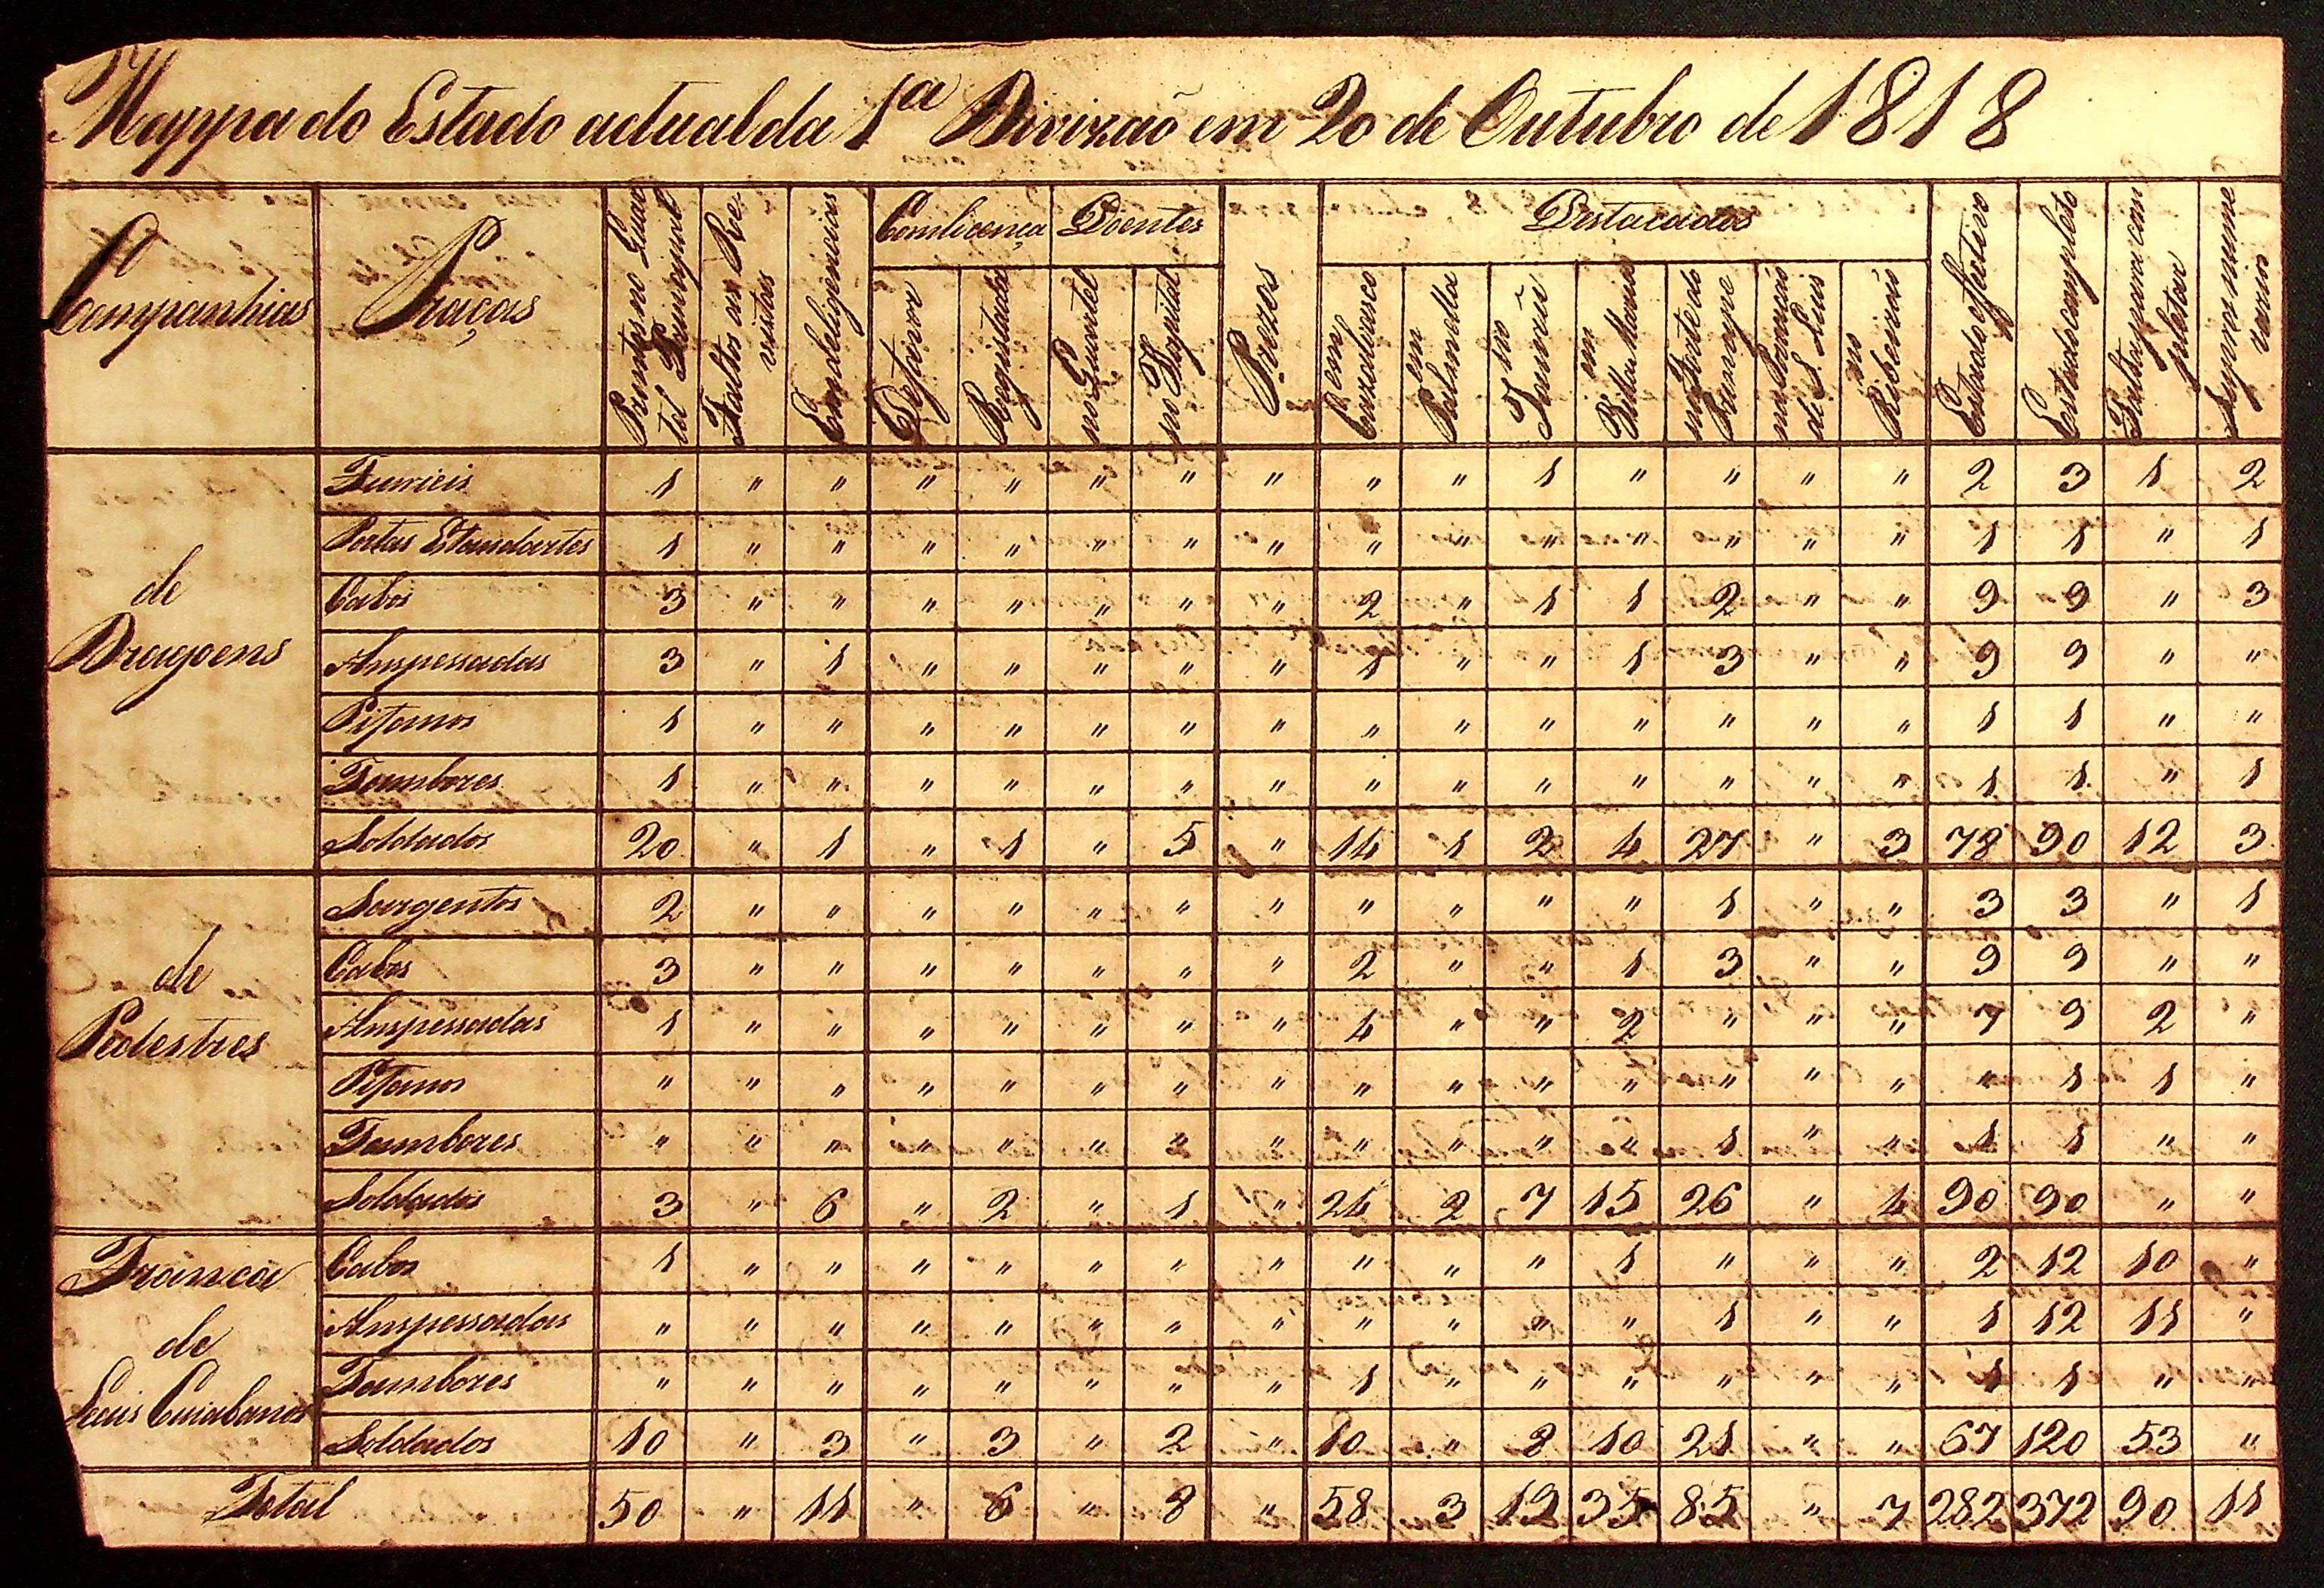 Mappa do Estado actual da 1ª Divizaõ em 20 de Outubro de 1818
Companhias Praças Promtos no Quar Faltos em Re Em deligencias Com licença Doentes Prezos Destacados Estado effectivo Estado completo Falta para com Supra nume
tel Principal vistas plectar rario
Registada no Quartel no Hospital em em no em no Forte do na Provincia no
Cazalvasco Palmella Jaurú Villa Maria Principe de S. Luis
Furrieis 1 " " " " " " " " " 1 " " " " 2 3 1 2
Portas Estandartes 1 " " " " " " " " " " " " " " 1 1 " 1
de Cabos 3 " " " " " " " 2 " 1 1 2 " " 9 9 " 3
Dragoens Anspessadas 3 " 1 " " " " " 1 " " 1 3 " " 9 9 " "
Pifanos 1 " " " " " " " " " " " " " " 1 1 " "
Tambores 1 " " " " " " " " " " " " " " 1 1 " 1
Soldados 20 " 1 " 1 " 5 " 14 1 2 4 27 " 3 78 90 12 3
Sargentos 2 " " " " " " " " " " " 1 " " 3 3 " 1
de Cabos 3 " " " " " " " 2 " " 1 3 " " 9 9 " "
Pedestres Anspessadas 1 " " " " " " " 4 " " 2 " " " 7 9 2 "
Pifanos " " " " " " " " " " " " " " " " 1 1 "
Tambores " " " " " " " " " " " " 1 " " 1 1 " "
Soldados 3 " 6 " 2 " 1 " 24 2 7 15 26 " 4 90 90 " "
Franca Cabos 1 " " " " " " " " " " 1 " " " 2 12 10 "
de Anspessadas " " " " " " " " " " " " 1 " " 1 12 11 "
Tambores " " " " " " " " 1 " " " " " " 1 1 " "
Leais Cuiabanos Soldados 10 " 3 " 3 " 2 " 10 " 8 10 21 " " 67 120 53 "
Total 50 " 11 " 6 " 8 " 58 3 19 35 85 " 7 282 372 90 11